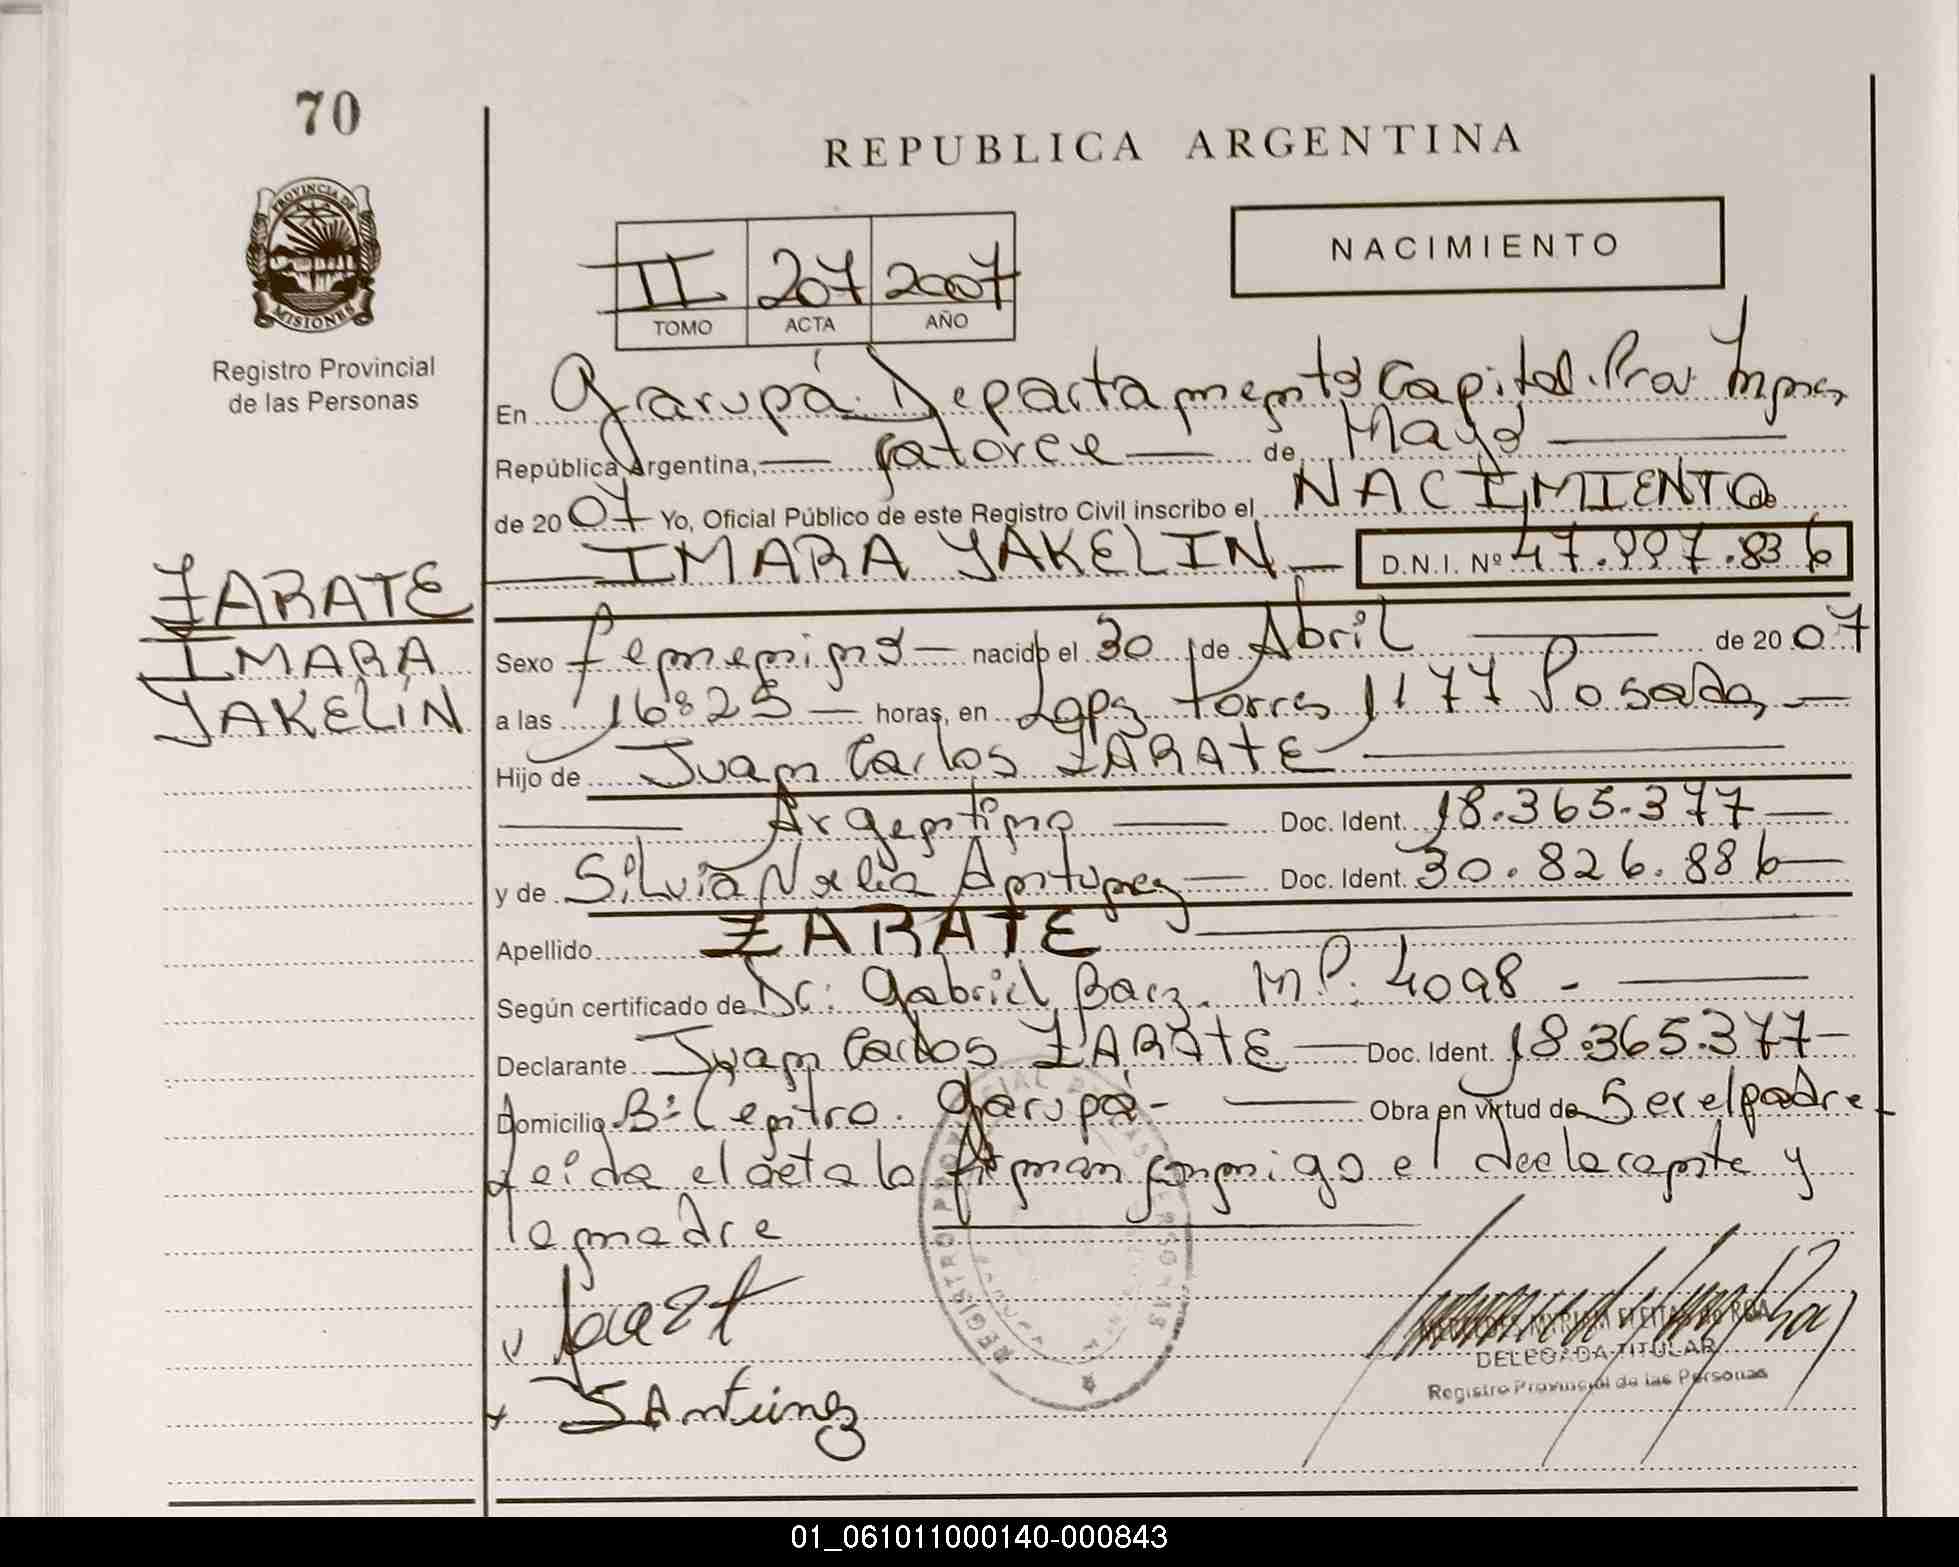 70
REPUBLICA ARGENTINA
PROVINCIA DE
MISIONES
Registro Provincial
de las Personas
NACIMIENTO
II 207 2007
TOMO ACTA AÑO
En Garupá Departamento Capital. Prov. Mnes
República Argentina, — catorce — de Mayo —
de 2007 Yo, Oficial Público de este Registro Civil inscribo el NACIMIENTO de
— IMARA YAKELIN — D.N.I. Nº 47.997.836
ZARATE
IMARA
YAKELIN
Sexo femenino — nacido el 30 de Abril — de 2007
a las 16:25 — horas, en Lopez Torres 1177 Posadas —
Hijo de Juan Carlos ZARATE —
— Argentino — Doc. Ident. 18.365.377 —
y de Silvia Antunez — Doc. Ident. 30.826.886 —
Apellido ZARATE —
Según certificado de Dr. Gabriel Baez. M.P. 4098 - —
Declarante Juan Carlos ZARATE — Doc. Ident. 18.365.377 —
Domicilio Bº Centro. Garupá - — Obra en virtud de Ser el padre
Leida el acta la firman conmigo el declarante y
la madre —
S Antunez
DELEGADA TITULAR
Registro Provincial de las Personas
01_061011000140-000843